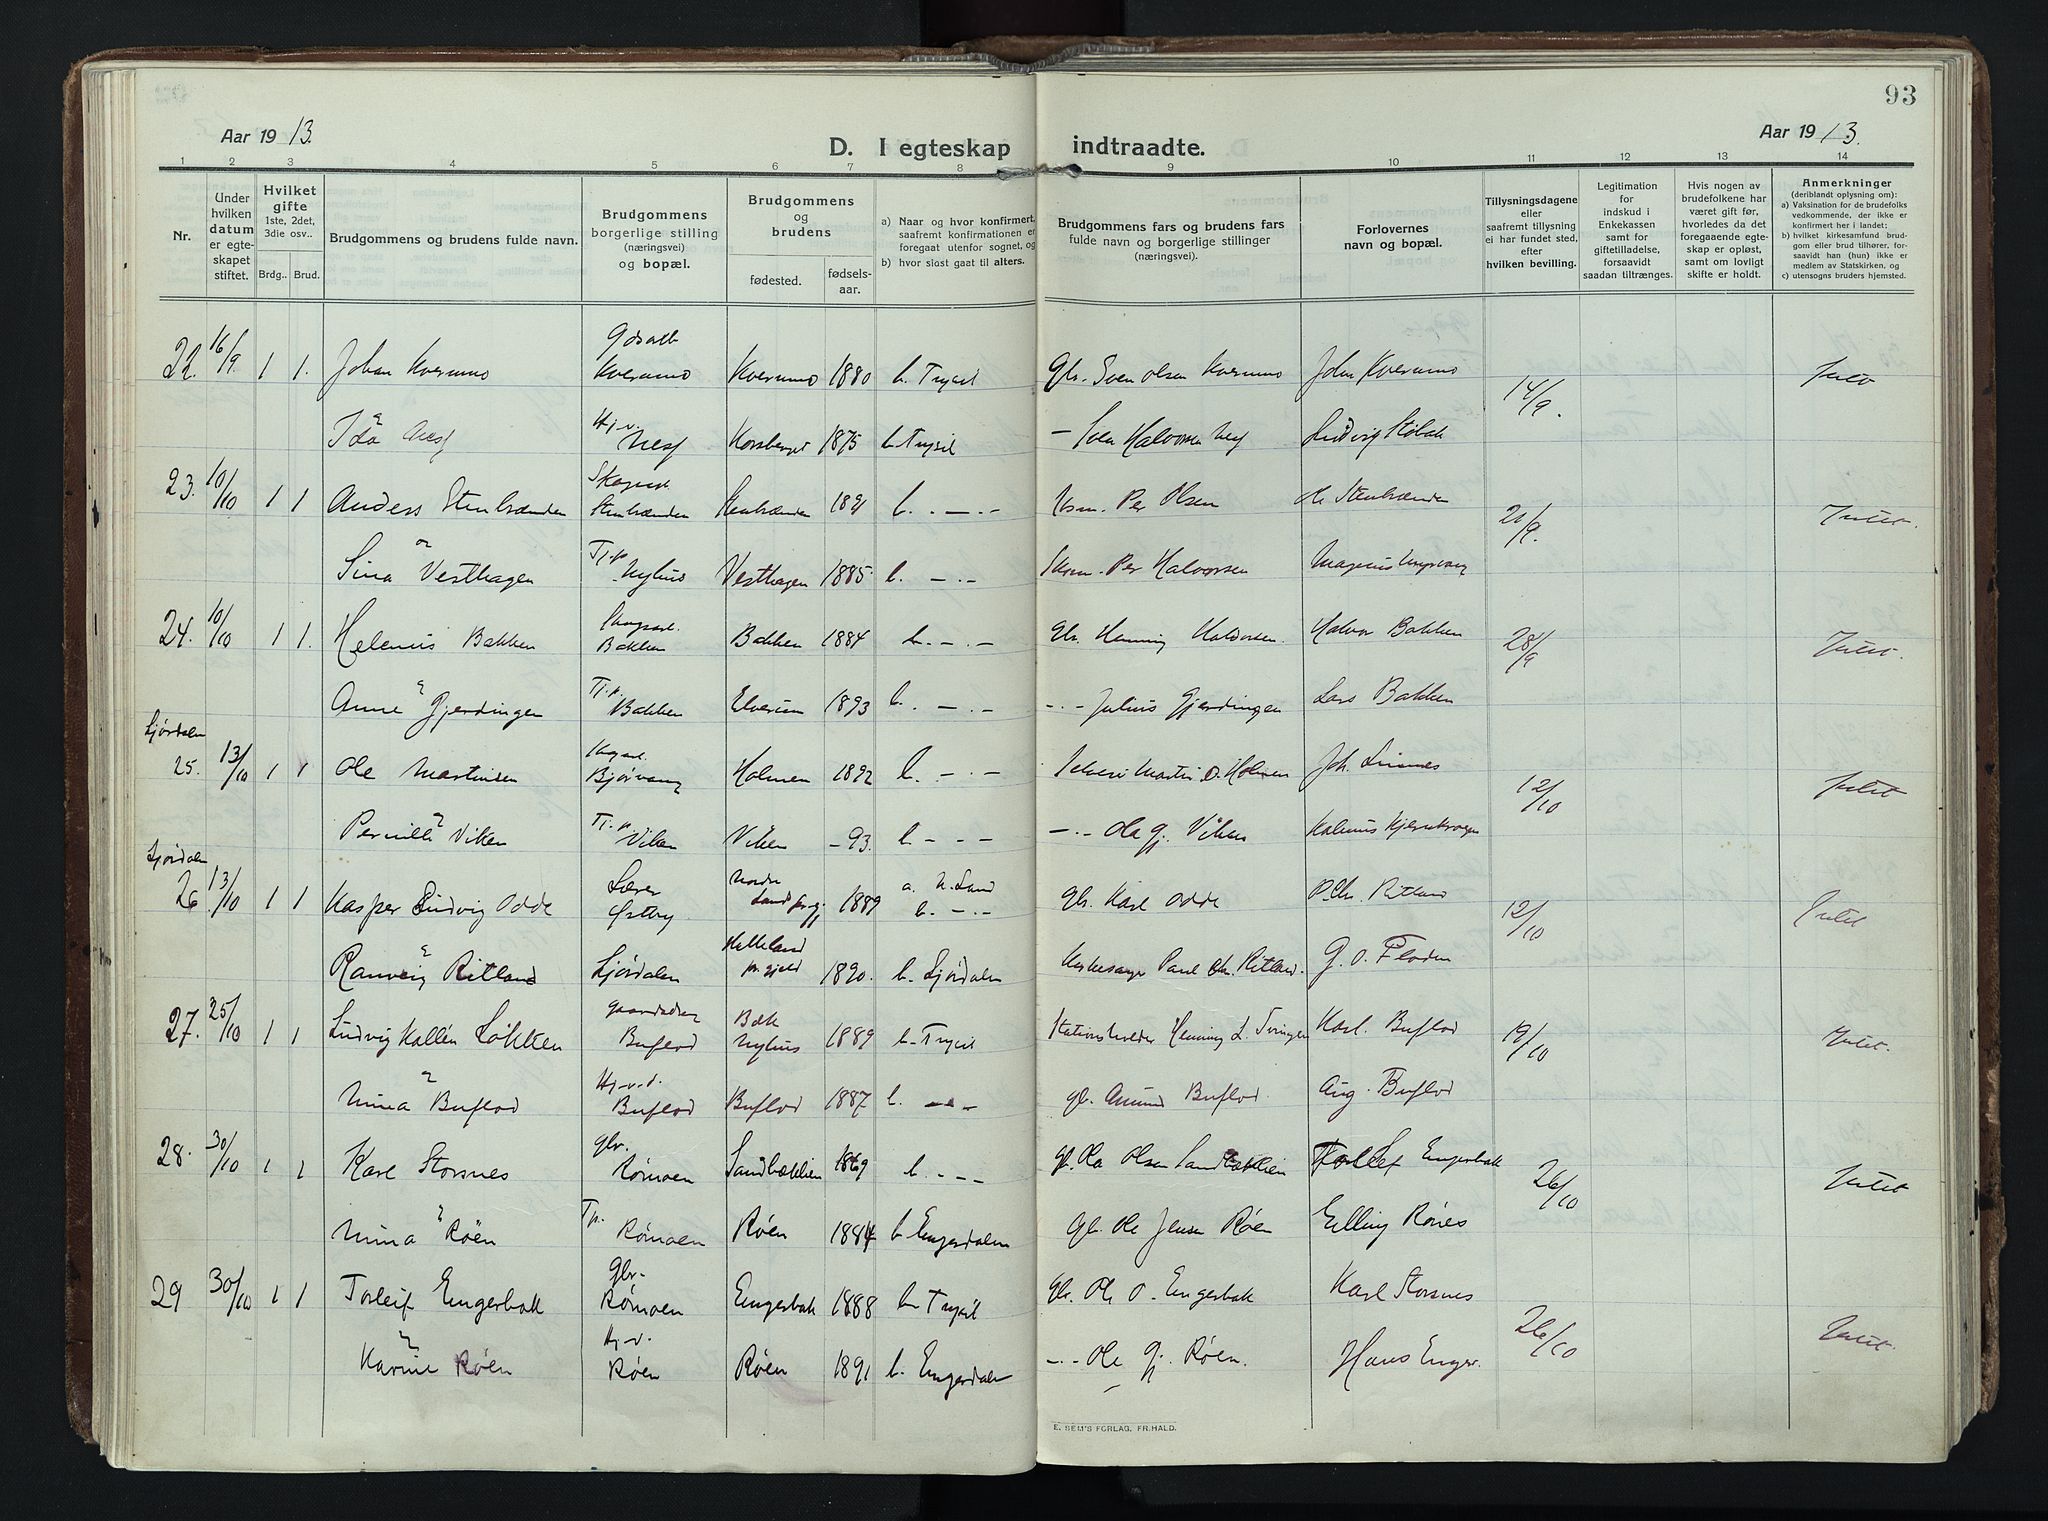 93
Aar 1913.
D. I egteskap indtraadte.
Aar 1913.
1 2 3 4 5 6 7 8 9 10 11 12 13 14
Nr.
Under hvilken datum er egteskapet stiftet.
Hvilket gifte 1ste, 2det, 3die osv..
Brdg.. Brud.
Brudgommens og brudens fulde navn.
Brudgommens borgerlige stilling (næringsvei) og bopæl.
Brudgommens og brudens
fødested. fødselsaar.
a) Naar og hvor konfirmert, saafremt konfirmationen er foregaat utenfor sognet, og
b) hvor sidst gaat til alters.
Brudgommens fars og brudens fars fulde navn og borgerlige stillinger (næringsvei).
Forlovernes navn og bopæl.
Tillysningsdagene eller saafremt tillysning ei har fundet sted, efter hvilken bevilling.
Legitimation for indskud i Enkekassen samt for giftetilladelse, forsaavidt saadan tiltrænges.
Hvis nogen av brudefolkene har været gift før, hvorledes da det foregaaende egteskap er opløst, samt om lovligt skifte er holdt.
Anmerkninger (deriblandt oplysning om):
a) Vaksination for de brudefolks vedkommende, der ikke er konfirmert her i landet;
b) hvilket kirkesamfund brudgom eller brud tilhører, forsaavidt han (hun) ikke er medlem av Statskirken, og
c) utensogns bruders hjemsted.
22. 16/9. 1 1. Johan Kverumo Kverumo Kverumo 1880 b. Trysil Gbr. Sven Olsen Kverumo John Kverumo 14/9.
Ida Nesf Hj.v. Nesf Korsberget 1875 b. Trysil - Sven Halvorsen Nesf Ludvig Støbak
23. 10/10 1 1 Anders Stenbrænden Stenbrænden Stenbrænden 1891 b. - - Per Olsen Ole Stenbrænden 21/9. Intet.
Sina Vesthagen Tj.p. Nyhus Vesthagen 1885. b. - - Per Halvorsen Magnus
24. 10/10 1 1. Helenus Bakken Bakken Bakken 1884 b. - - Gbr. Henning Haldorsen. Halvor Bakken 28/9 Intet.
Anne Gjerdingen Tj.p. Bakken Elverum 1893 b. - - - - Julius Gjerdingen Lars Bakken
Ljørdalen
25. 13/10 1 1 Ole Martinsen Bjørvang Holmen 1892 b. - - Martin O. Holmen Joh. Linnes 12/10 Intet
Pernille Viken Tj.p. Viken Viken - 93. b. - - - - - Ola Gj. Viken
Ljørdalen
26. 13/10 1 1 Kasper Ludvig Odde Lærer Østby Nordre Land prgj 1889 a. N. Land b. - - gbr. Karl Odde P. Chr. Ritland 12/10 Intet
Ranveig Ritland Ljørdalen Helleland pr.gjeld 1890. b. Ljørdalen Kirkesanger Paul Chr. Ritland. G. O. Floden
27. 25/10 1 1 Ludvig Kallén Løkken Buflod Bæk Nyhus 1889 b. Trysil Stationsholder Henning L. Tvingen Karl. Buflod 19/10 Intet.
Mina Buflod Hj.v.d. Buflod Buflod 1887 b. - - gb. Amund Buflod. Aug. Buflod
28. 30/10 1 1 Karl Storsnes gbr. Rømoen Sandbækkien 1869 b. - - - gb. Ola Olsen Sandbækkien Torleif Engerbak 26/10 Intet
Mina Røen Tp. Rømoen Røen 1884 b. Engerdalen gbr. Ole Jensen Røen Elling Rønes
29 30/10 1 1 Torleif Engerbak Gbr. Rømoen Engerbak 1888 b. Trysil gbr. Ole O. Engerbak Karl Storsnes 26/10 Intet.
Karine Røen Hj.v. Røen Røen 1891 b. Engerdalen - - Ole Gj. Røen. Hans Enger.
E. SEM'S FORLAG, FR.HALD.